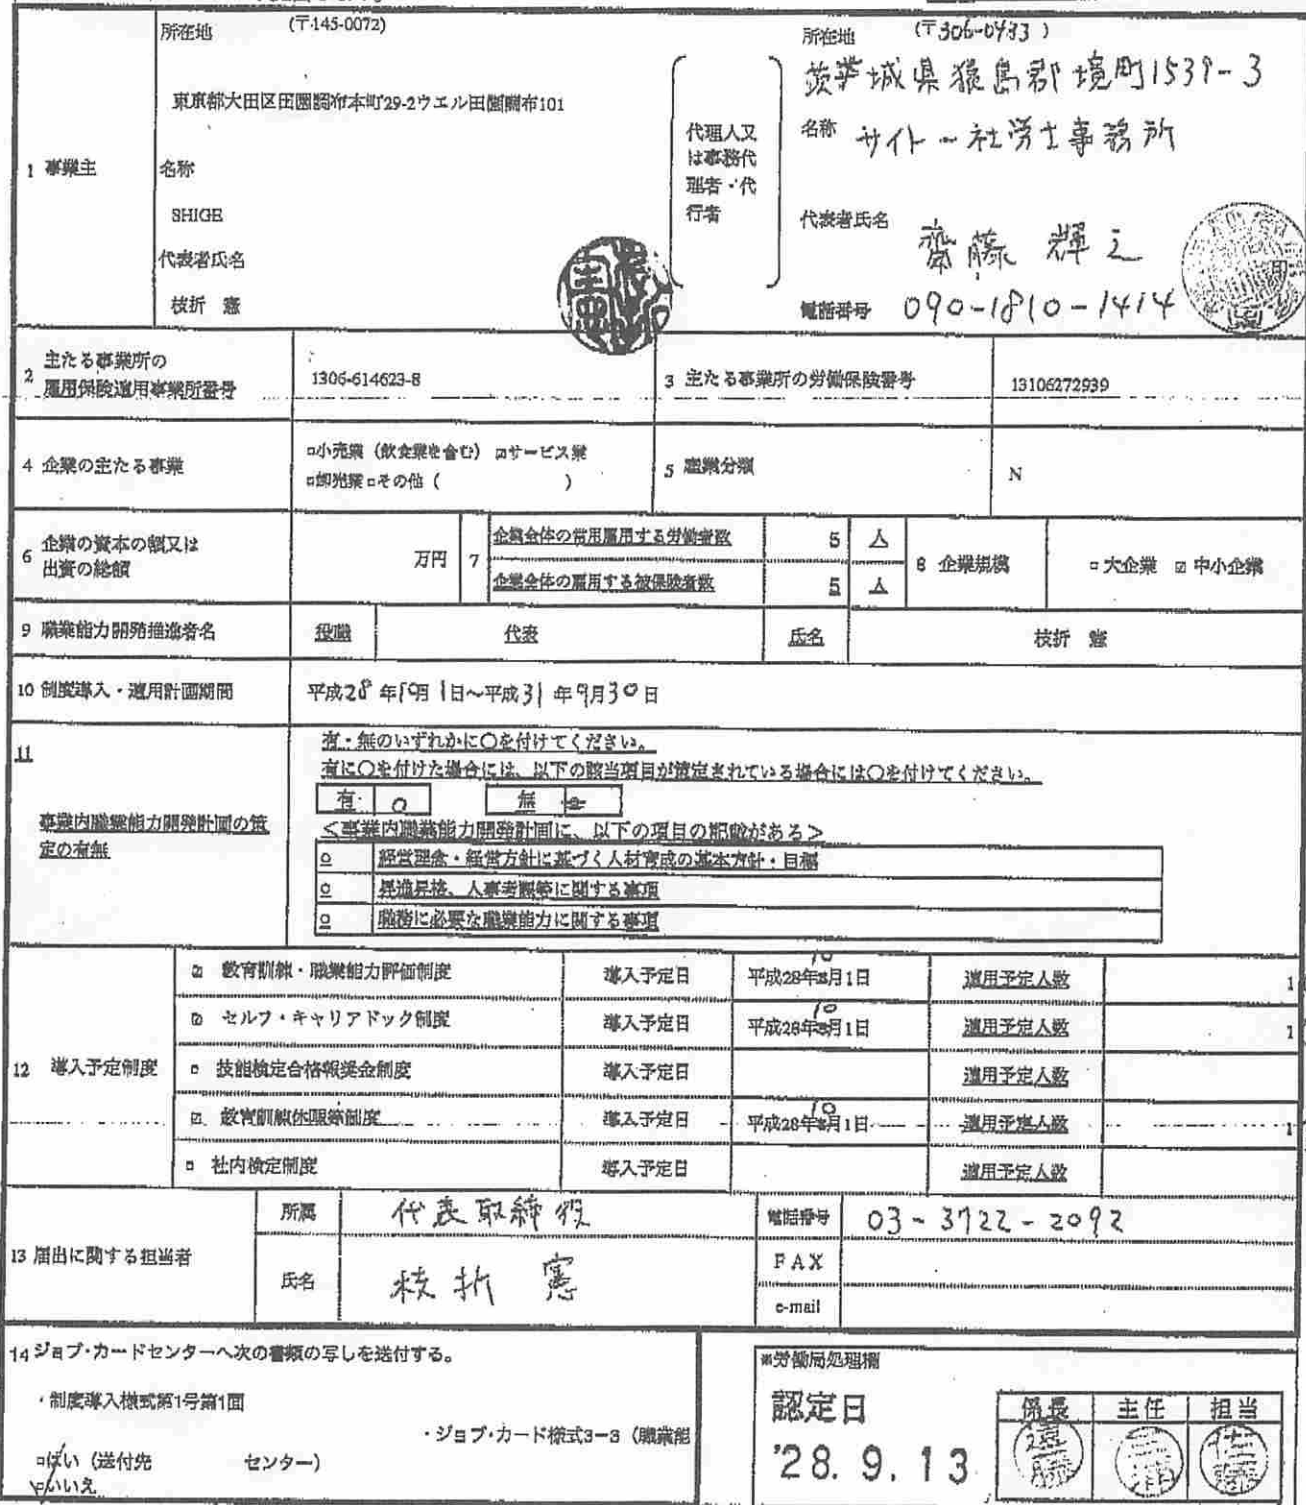 所在地 (〒145-0072)
東京都大田区田園調布本町29-2ウエル田園調布101
1 事業主
名称
SHIGE
代表者氏名
枝折 憲
代理人又
は事務代
理者・代
行者
所在地 (〒306-0433)
茨城県猿島郡境町1539-3
名称 サイトー社労士事務所
代表者氏名 齋藤 輝之
電話番号 090-1810-1414
2 主たる事業所の
雇用保険適用事業所番号
1306-614623-8
3 主たる事業所の労働保険番号
13106272939
4 企業の主たる事業
□小売業(飲食業を含む) ☑サービス業
□卸売業□その他( )
5 産業分類
N
6 企業の資本の額又は
出資の総額
万円
7 企業全体の常用雇用する労働者数 5 人
企業全体の雇用する被保険者数 5 人
8 企業規模
□大企業 ☑中小企業
9 職業能力開発推進者名
役職 代表 氏名 枝折 憲
10 制度導入・適用計画期間
平成28年10月1日~平成31年9月30日
11
事業内職業能力開発計画の策
定の有無
有・無のいずれかに○を付けてください。
有に○を付けた場合には、以下の該当項目が策定されている場合には○を付けてください。
有 ○ 無
<事業内職業能力開発計画に、以下の項目の記載がある>
○ 経営理念・経営方針に基づく人材育成の基本方針・目標
○ 昇進昇格、人事考課等に関する事項
○ 職務に必要な職業能力に関する事項
12 導入予定制度
☑ 教育訓練・職業能力評価制度 導入予定日 平成28年10月1日 適用予定人数 1
☑ セルフ・キャリアドック制度 導入予定日 平成28年10月1日 適用予定人数 1
□ 技能検定合格報奨金制度 導入予定日 適用予定人数
☑ 教育訓練休暇等制度 導入予定日 平成28年10月1日 適用予定人数 1
□ 社内検定制度 導入予定日 適用予定人数
13 届出に関する担当者
所属 代表取締役
氏名 枝折 憲
電話番号 03-3722-2092
FAX
e-mail
14 ジョブ・カードセンターへ次の書類の写しを送付する。
・制度導入様式第1号第1面
・ジョブ・カード様式3-3(職業能
□はい(送付先 センター)
□いいえ
※労働局処理欄
認定日
'28.9.13
係長 主任 担当
遠藤 三浦